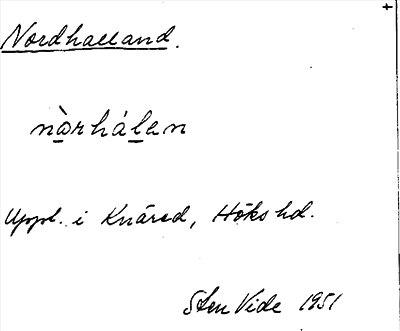 Nordhalland.
nòrhálen
Uppt. i Knäred, Höks hd.
Sten Vide 1951